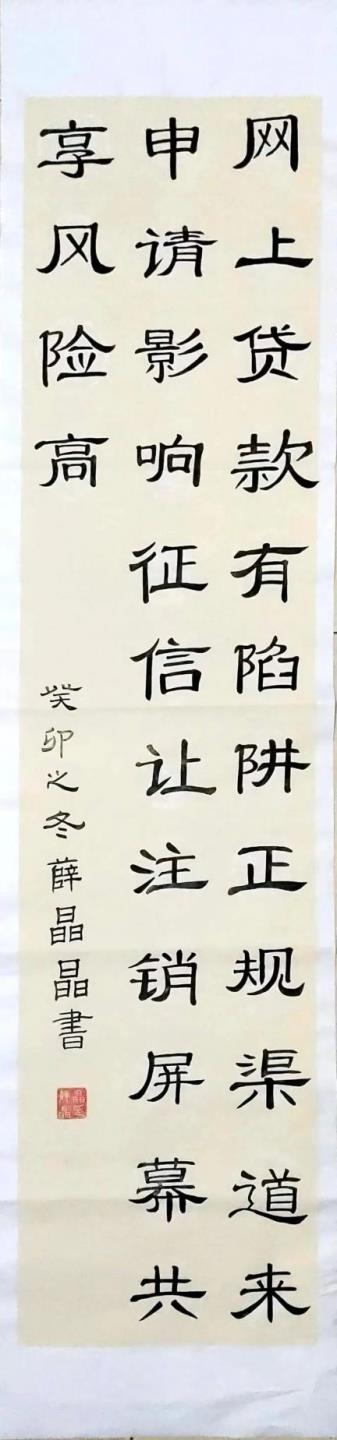 网上贷款有陷阱正规渠道来
申请影响征信让注销屏幕共
享风险高
癸卯之冬薛晶晶書